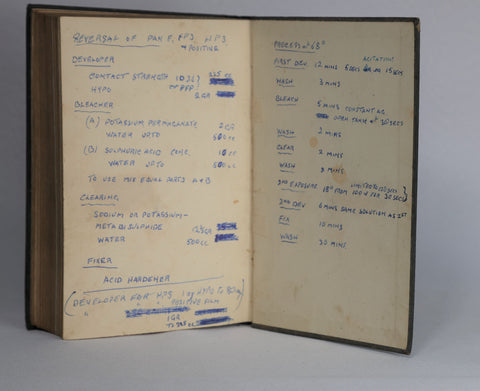 REVERSAL OF PAN F, FP3, HP3
+ POSITIVE
DEVELOPER
CONTACT STRENGTH ID 36?
HYPO 2 GR
BLEACHER
(A) POTASSIUM PERMAGANATE 2 GR
WATER UPTO 500 CC
(B) SULPHURIC ACID CONC. 10 CC
WATER UPTO 500 CC
TO USE MIX EQUAL PARTS A+B
CLEARING
SODIUM OR POTASSIUM-
METABISULPHIDE 12½GR
WATER 500 CC
FIXER
ACID HARDENER
(DEVELOPER FOR HPS HYPO
" " " POSITIVE FILM
1 GR
PROCESS AT 68°
AGITATION
FIRST DEV. 12 MINS 5 SECS 15 SECS
WASH 3 MINS
BLEACH 5 MINS CONSTANT AG
OPEN TANK AT 30 SECS
WASH 2 MINS
CLEAR 2 MINS
WASH MINS
2ND EXPOSURE 18" FROM 100 W FOR 30 SECS
2ND DEV 6 MINS SAME SOLUTION AS 1ST
FIX 10 MINS
WASH 30 MINS